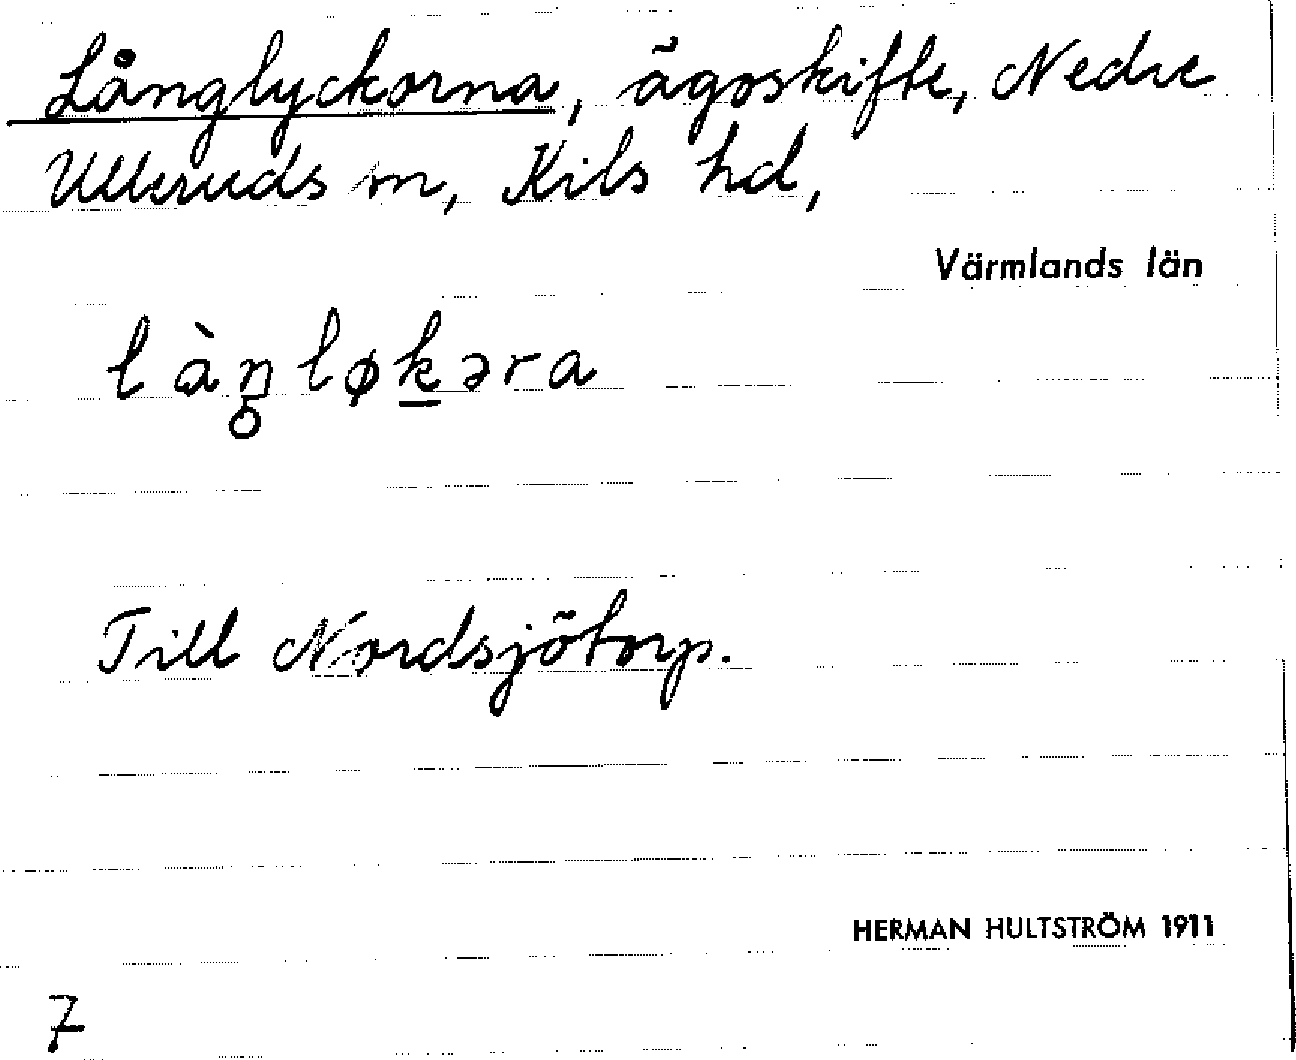 Långlyckorna, ägoskifte, Nedre
Ulleruds sn, Kils hd,
Värmlands län
làŋ̥løk̲əra
Till Nordsjötorp.
HERMAN HULTSTRÖM 1911
7